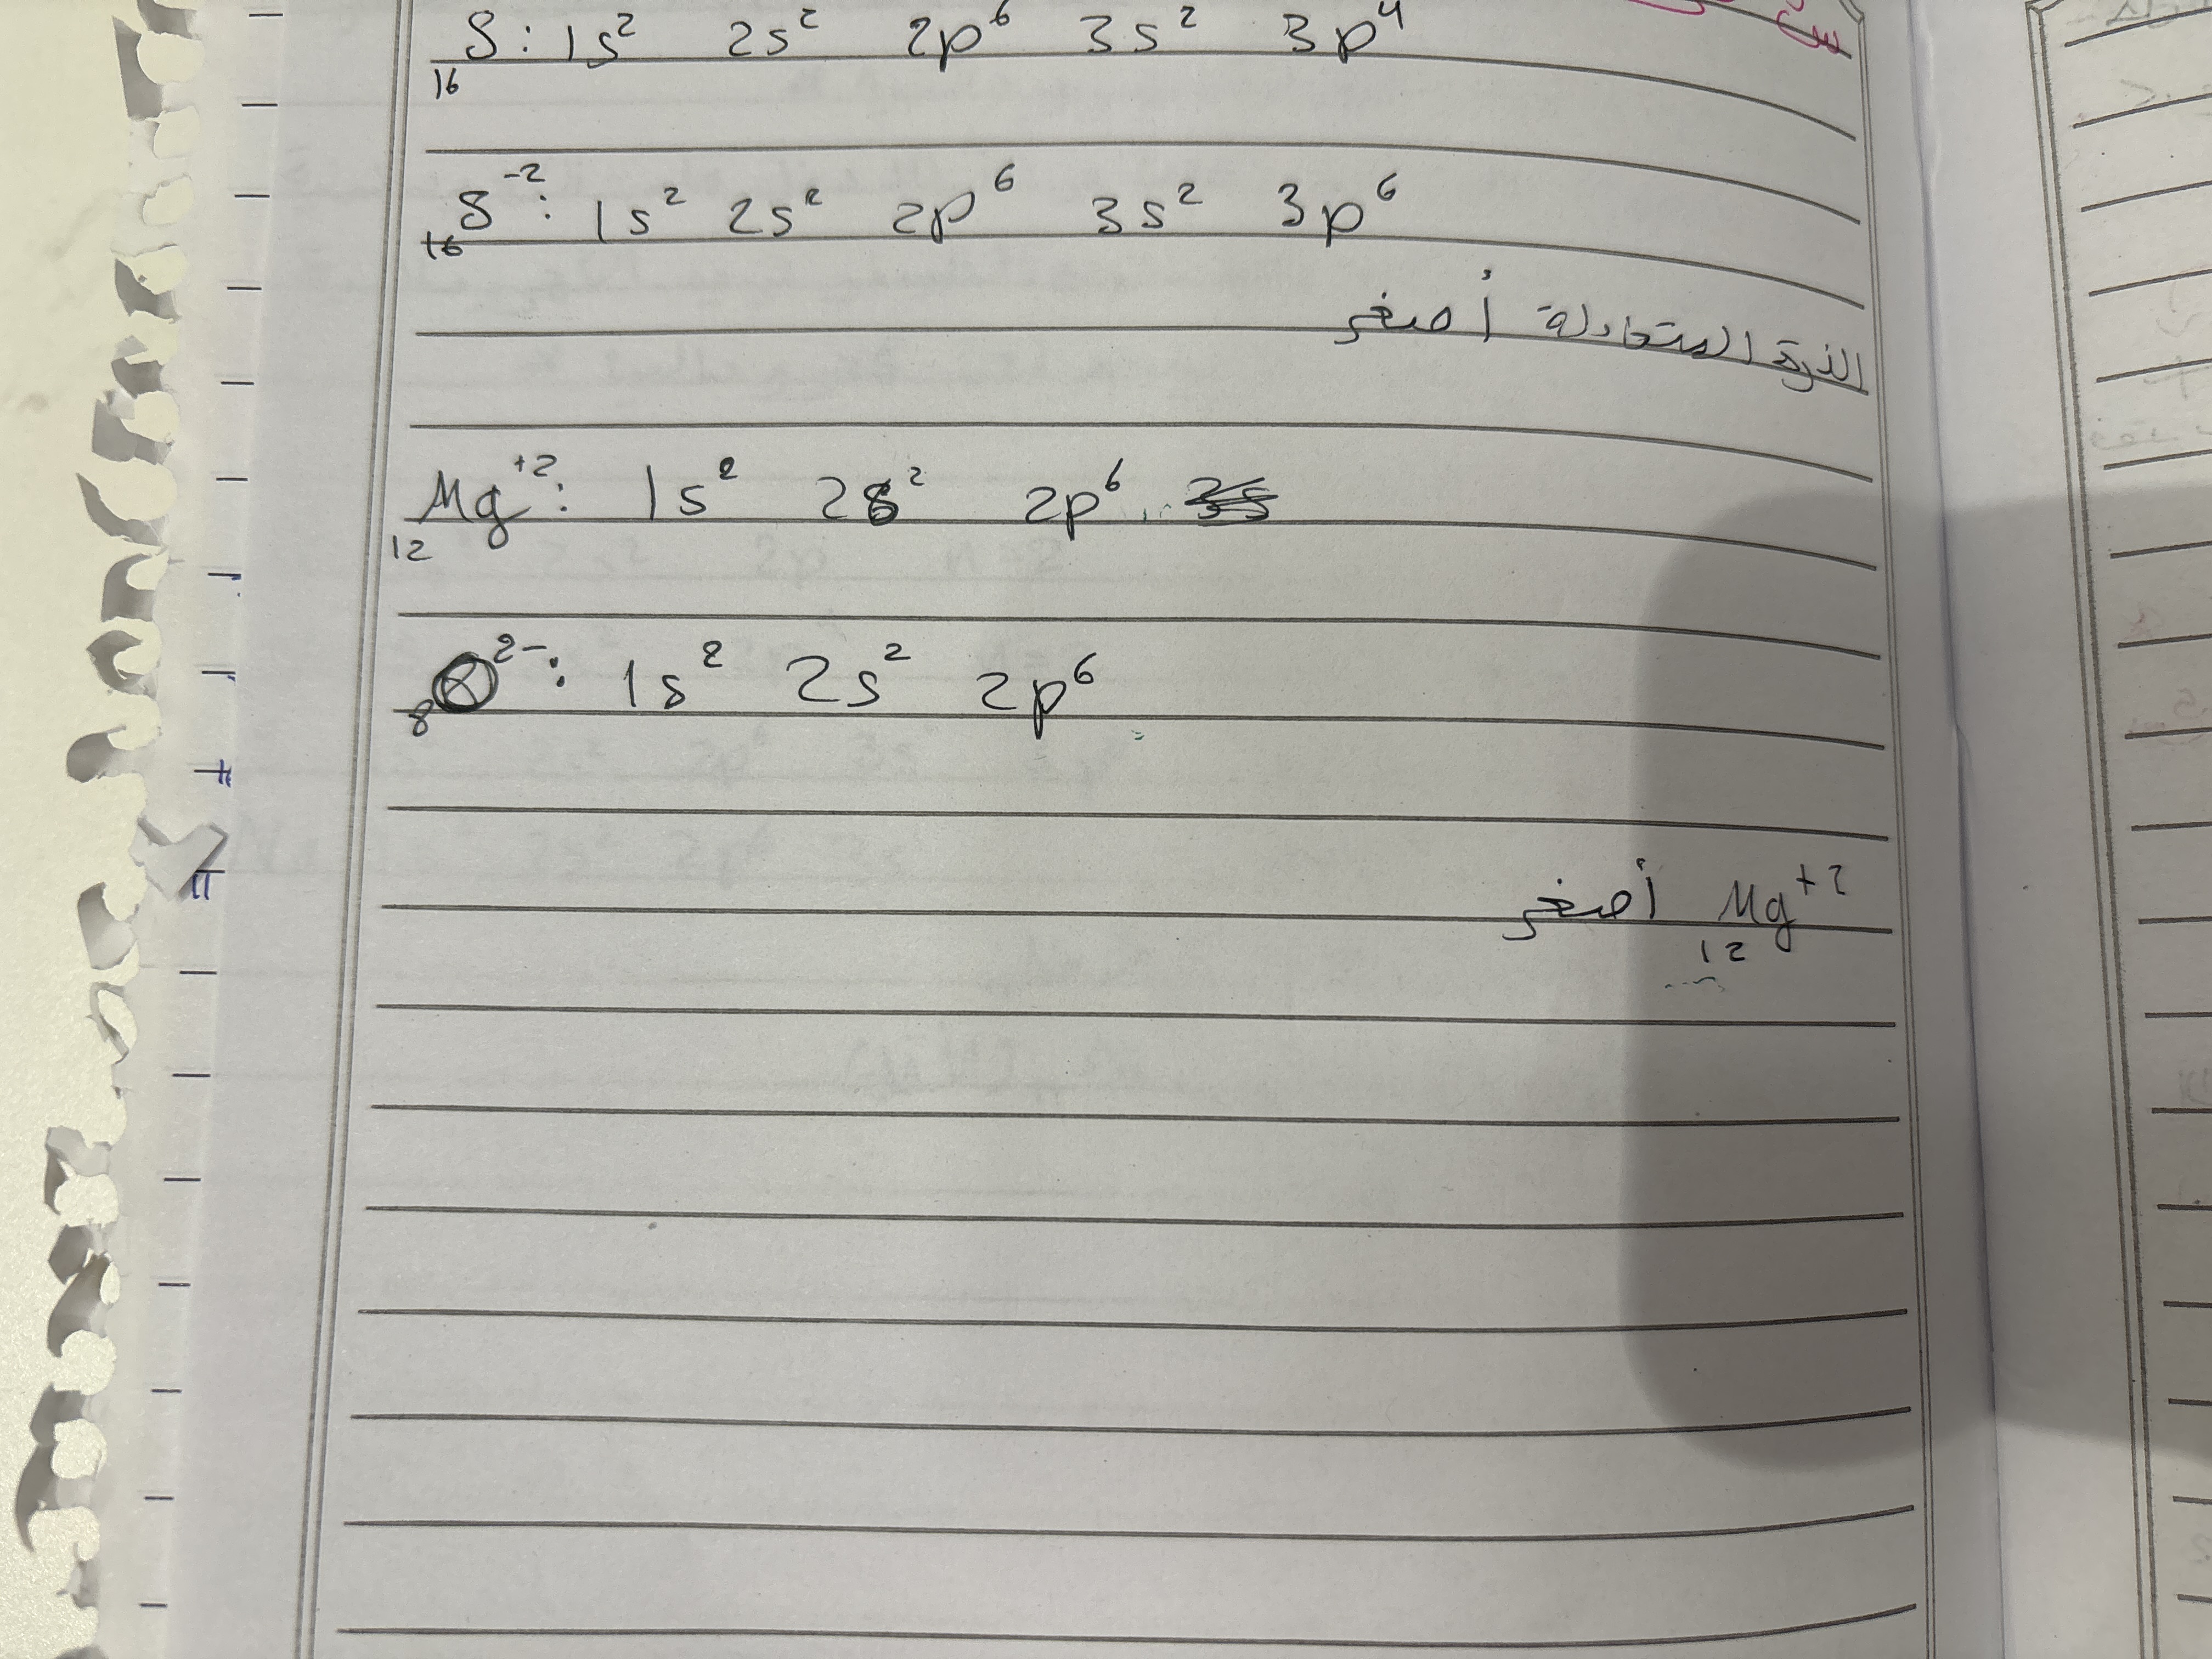 ₁₆S : 1s² 2s² 2p⁶ 3s² 3p⁴
₁₆S⁻² : 1s² 2s² 2p⁶ 3s² 3p⁶
الذرة المتعادلة أصغر
₁₂Mg⁺² : 1s² 2s² 2p⁶
₈O²⁻ : 1s² 2s² 2p⁶
₁₂Mg⁺² أصغر